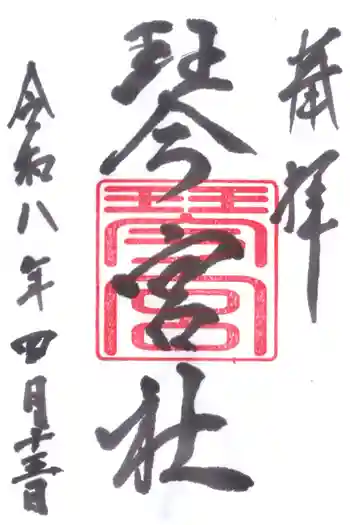 奉拝
琴宮社
琴宮
令和八年四月十五日